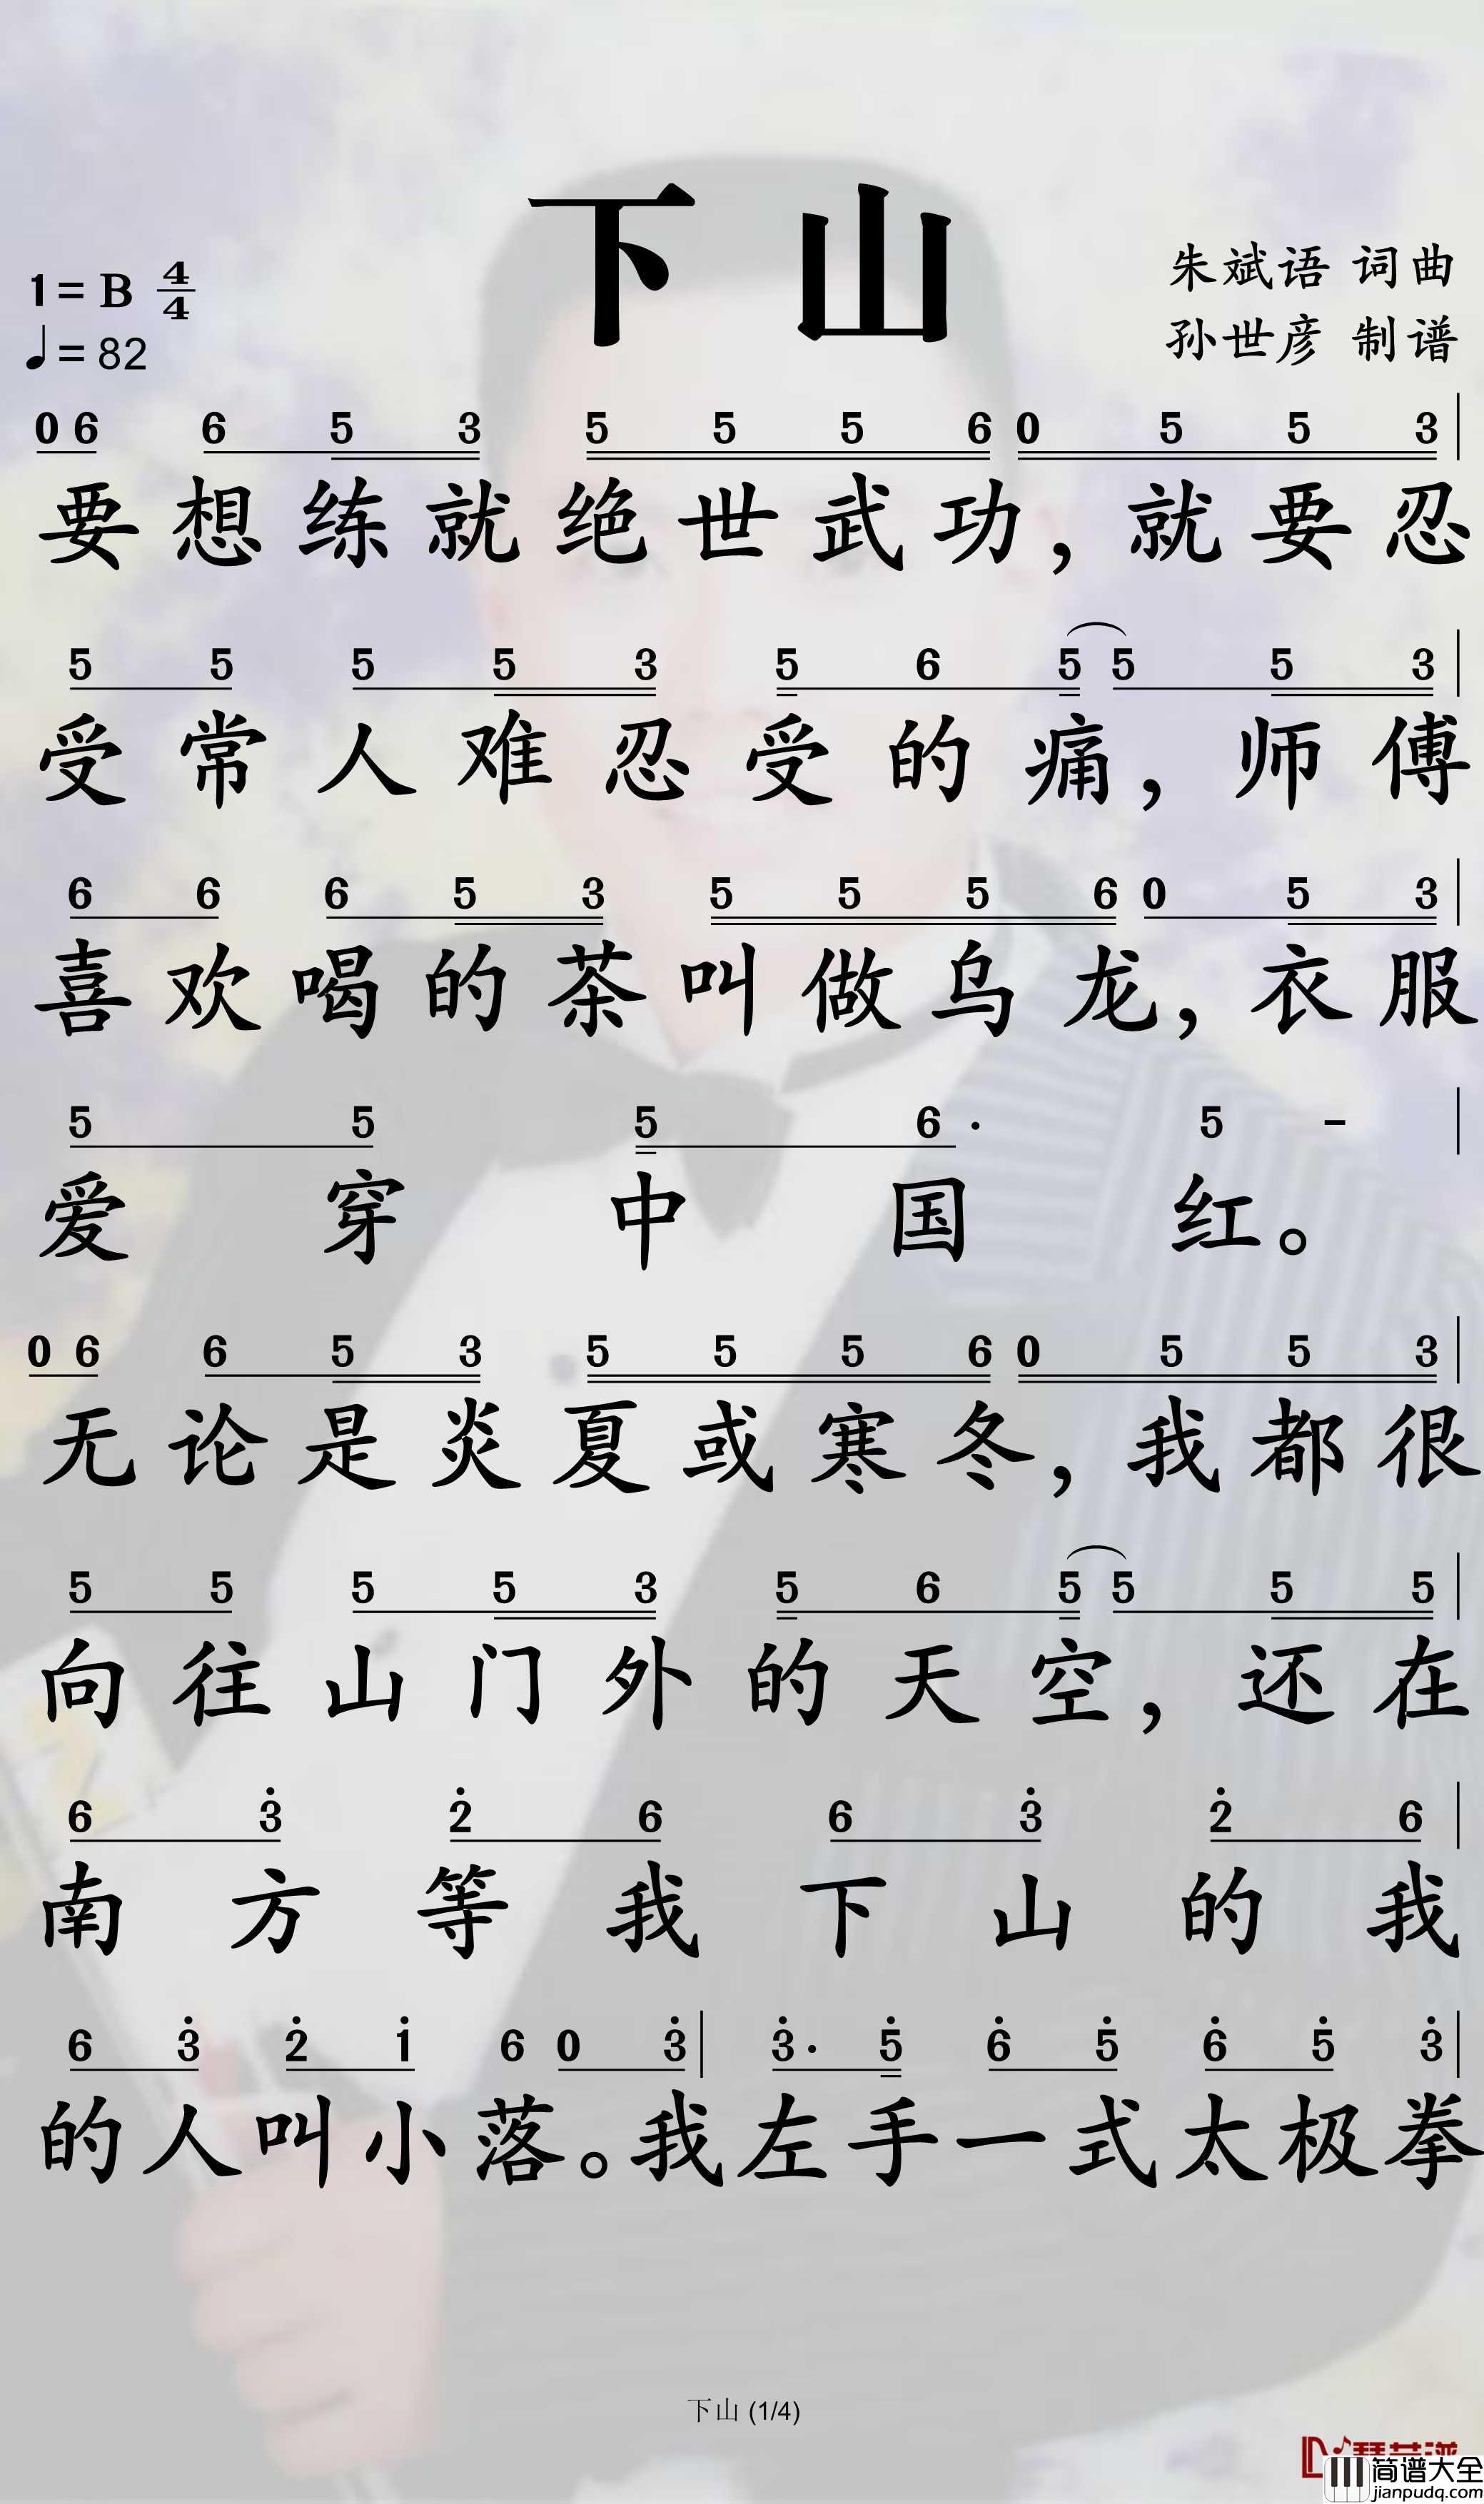 下山
1=B 4/4
♩=82
朱斌语 词曲
孙世彦 制谱
0 6 6 5 3 5 5 5 6 0 5 5 3 |
要想练就绝世武功，就要忍
5 5 5 5 3 5 6 5 5 5 3 |
受常人难忍受的痛，师傅
6 6 6 5 3 5 5 5 6 0 5 3 |
喜欢喝的茶叫做乌龙，衣服
5 5 5 6· 5 - |
爱穿中国红。
0 6 6 5 3 5 5 5 6 0 5 5 3 |
无论是炎夏或寒冬，我都很
5 5 5 5 3 5 6 5 5 5 5 |
向往山门外的天空，还在
6 3̇ 2̇ 6 6 3̇ 2̇ 6 |
南方等我下山的我
6 3̇ 2̇ 1̇ 6 0 3̇ | 3̇· 5̇ 6̇ 5̇ 6̇ 5̇ 3̇ |
的人叫小落。我左手一式太极拳
下山 (1/4)
简谱大全
jianpudq.com